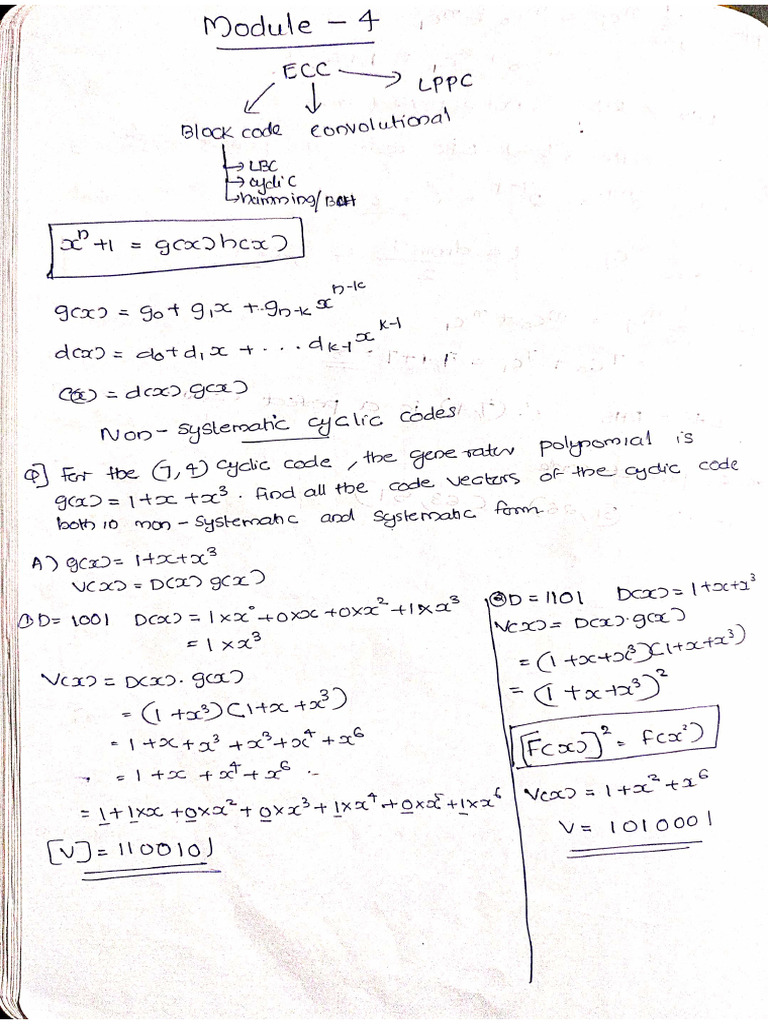 Module - 4
ECC → LPPC
Block code convolutional
→ LBC
→ cyclic
→ hamming/BCH
xⁿ+1 = g(x) h(x)
g(x) = g₀ + g₁x + ..gₙ₋ₖ xⁿ⁻ᵏ
d(x) = d₀+d₁x + ... dₖ₋₁xᵏ⁻¹
c(x) = d(x).g(x)
Non-systematic cyclic codes
Q] For the (7,4) cyclic code, the generator polynomial is
g(x) = 1+x+x³. Find all the code vectors of the cyclic code
both in non-systematic and systematic form
A) g(x) = 1+x+x³
V(x) = D(x) g(x)
① D = 1001 D(x) = 1×x⁰+0×x+0×x²+1×x³
= 1×x³
V(x) = D(x). g(x)
= (1+x³)(1+x+x³)
= 1+x+x³+x³+x⁴+x⁶
= 1+x+x⁴+x⁶
= 1+1×x+0×x²+0×x³+1×x⁴+0×x⁵+1×x⁶
[V] = 1100101
② D = 1101 D(x) = 1+x+x³
V(x) = D(x).g(x)
= (1+x+x³)(1+x+x³)
= (1+x+x³)²
[F(x)]² = F(x²)
V(x) = 1+x²+x⁶
V = 1010001